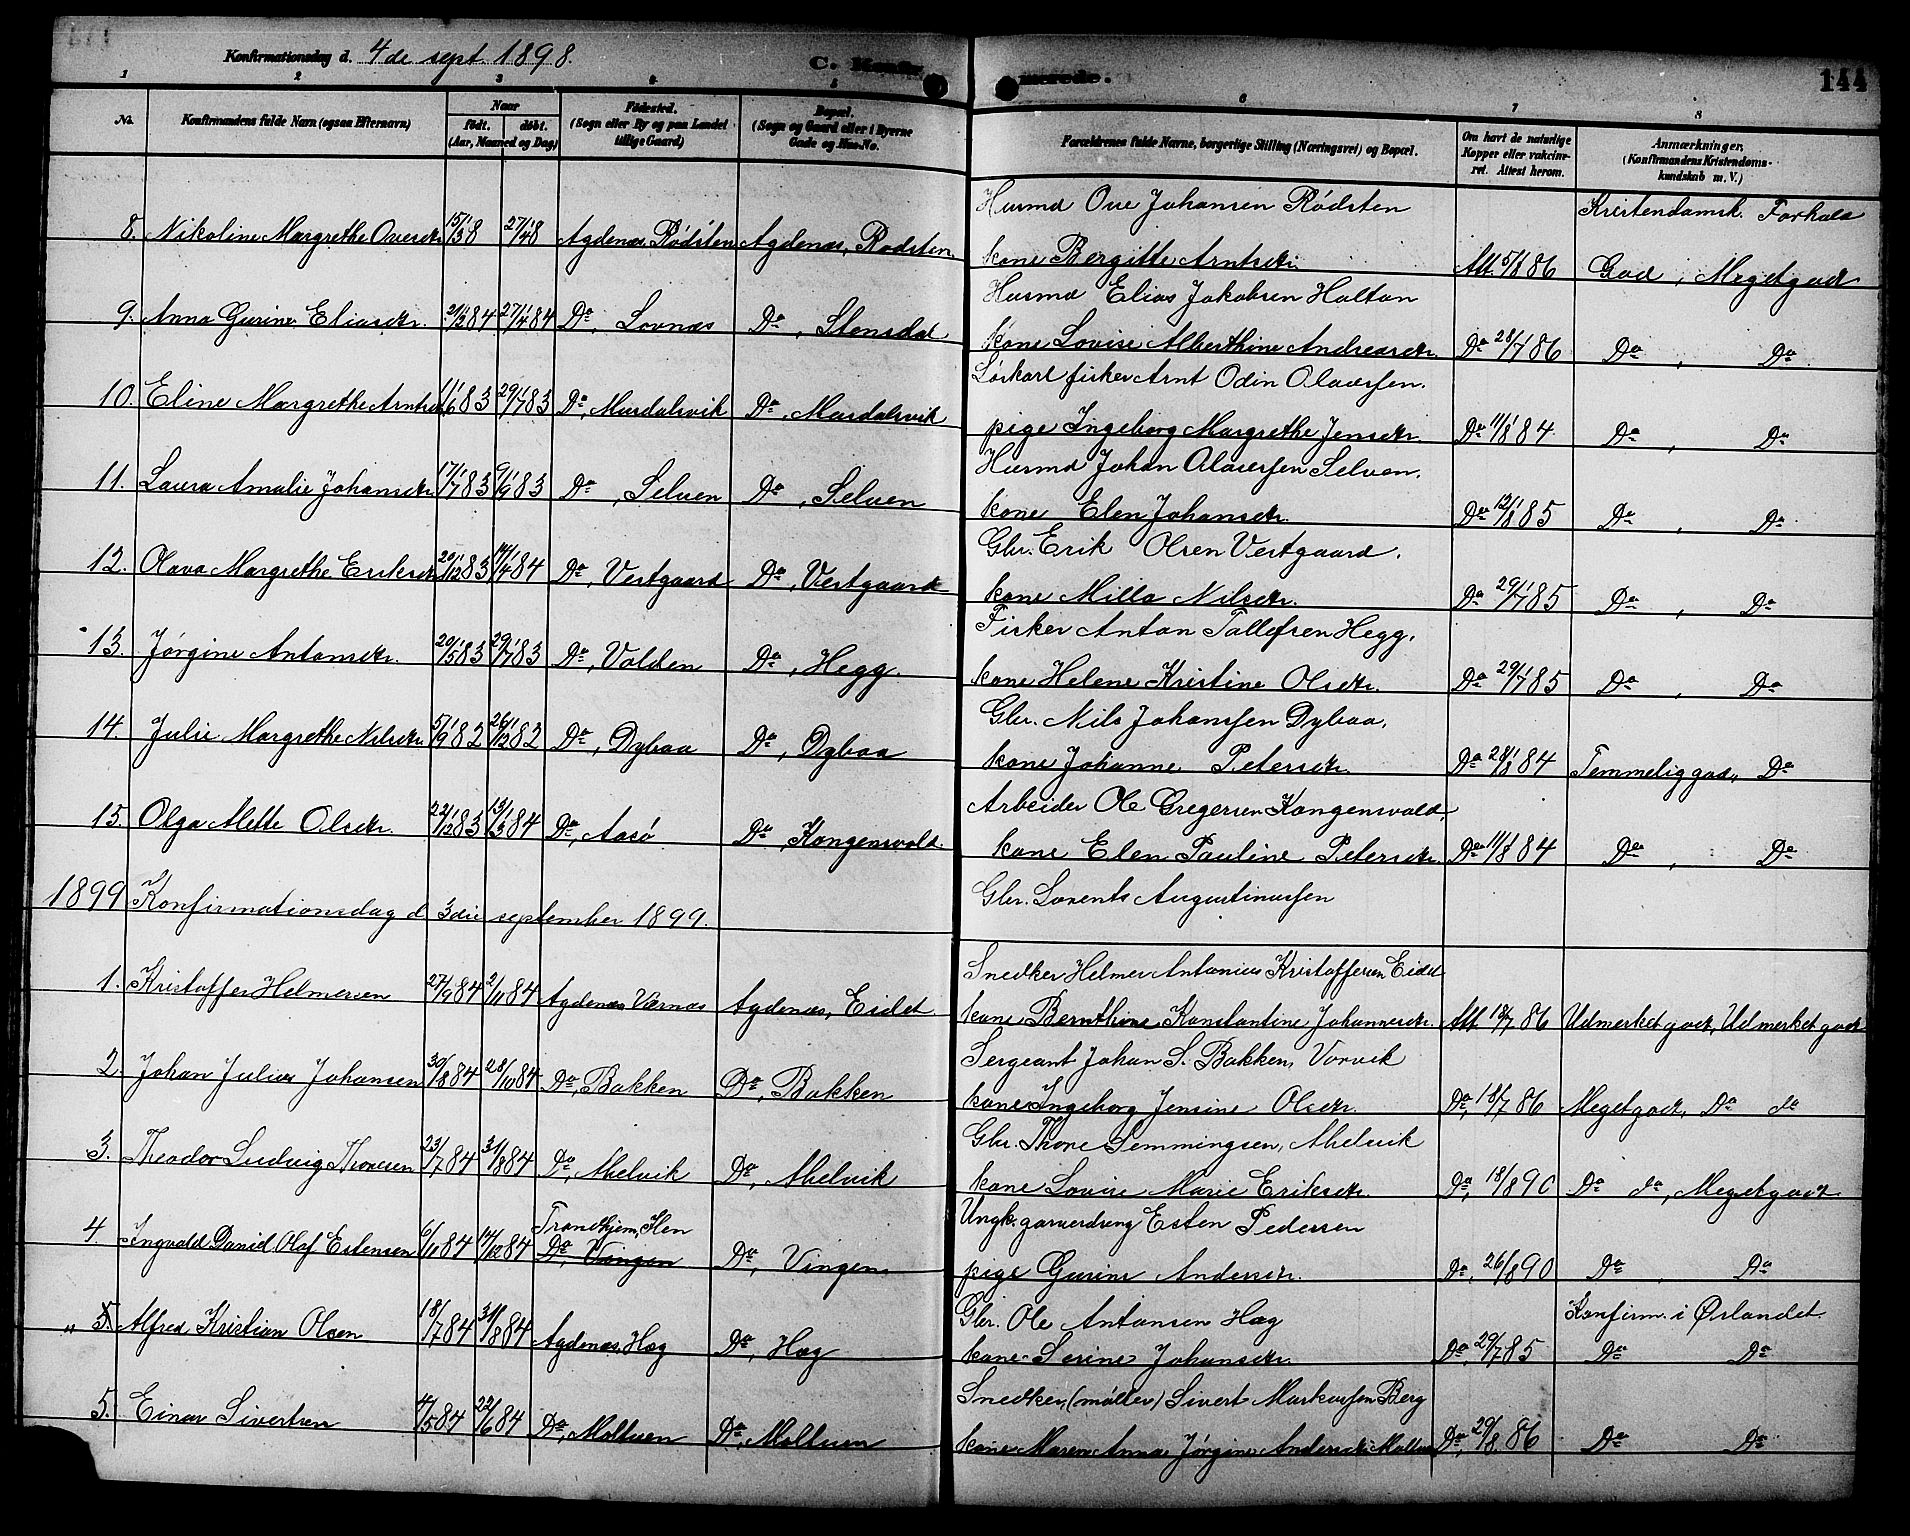 Konfirmationsdag d. 4de sept. 1898.
C. Konfir
merede.
144
1 2 3 4 5 6 7 8
No.
Konfirmandens fulde Navn (ogsaa Efternavn)
Naar
født. døbt.
(Aar, Maaned og Dag)
Fødested.
(Sogn eller By og paa Landet
tillige Gaard)
Bopæl.
(Sogn og Gaard eller i Byerne
Gade og Hus-No.
Forældrenes fulde Navne, borgerlige Stilling (Næringsvei) og Bopæl.
Om havt de naturlige
Kopper eller vakcine-
ret. Attest herom.
Anmærkninger.
(Konfirmandens Kristendoms-
kundskab m. V.)
Husmd Ove Johansen Rødsten
Kristendomsk. Forhold
8. Nikoline Margrethe Ovesdtr. 27/4 8 Agdenæs Rødsten Agdenæs, Rødsten. kone Bergitte Arntsdtr. Att. 86 God, Megetgodt
Husmd Elias Jakobsen Holtan
9. Anna Gurine Eliasdtr. 21/2 84 27/4 84 Do, Lovnæs Do, Stensdal kone Lovise Alberthine Andreasdtr. Do 28/7 86 Do, Do
Løskarl fisker Arnt Odin Olaussen.
10. Eline Margrethe Arntsdtr 11/6 83 29/7 83 Do, Murdalsvik Do, Murdalsvik pige Ingeborg Margrethe Jensdtr. Do 11/8 84. Do, Do
Husmd Johan Olaussen Selven.
11. Laura Amalie Johansdtr. 17/7 83 9/9 83 Do, Selven Do, Selven kone Elen Johansdtr. Do 12/8 85 Do, Do
Gbr. Erik Olsen Vestgaard.
12. Olava Margrethe Eriksdtr. 20/12 83 14/4 84 Do, Vestgaard Do, Vestgaard kone Milla Nilsdtr. Do 29/7 85 Do, Do
Fisker Anton Tollefsen Hegg.
13. Jørgine Antonsdtr. 20/5 83 29/7 83 Do, Volden Do, Hegg. kone Helene Kristine Olsdtr. Do 29/7 85 Do, Do
Gbr. Nils Johanssen Dybaa.
14. Julie Margrethe Nilsdtr. 5/9 82 26/12 82 Do, Dybaa Do, Dybaa kone Johanne Petersdtr. Do 28/8 84 Temmelig god, Do
Arbeider Ole Gregersen Kongensvold.
15. Olga Mette Olsdtr. 22/12 83 13/3 84 Do, Aasø Do, Kongensvold. kone Elen Pauline Petersdtr. Do 11/8 84 Do, Do
1899 Konfirmationsdag d. 3die september 1899.
Gbr. Lorents Augustinussen
Snedker Helmer Antonius Kristoffersen Eidet
1. Kristoffer Helmersen 27/9 84 2/11 84 Agdenæs Værnæs Agdenæs, Eidet kone Bernthine Konstantine Johannesdtr. Att. 18/7 86 Udmerket godt, Udmerket godt
Sergeant Johan S. Bakken, Vorvik
2. Johan Julius Johansen 30/8 84 28/10 84 Do, Bakken Do, Bakken kone Ingeborg Jensine Olsdtr. Do, 18/7 86 Megetgodt, Do do
Gbr. Thore Semmingsen, Mælvik
3. Theodor Ludvig Thoresen 23/7 84 31/8 84 Do, Mælvik Do, Mælvik kone Lovise Marie Eriksdtr. Do, 18/8 90 Do do, Megetgodt
Trondhjem, Ilen
Ungk. Esten Pedersen
4. Ingvald David Olaf Estensen 6/11 84 14/12 84 Do, Vingen Do, Vingen pige Gurine Andersdtr. Do, 26/8 90 Do, Do
Gbr. Ole Antonsen Hog
Konfirm. i Ørlandet.
" 5. Alfred Kristian Olsen 18/7 84 31/8 84 Agdenæs, Hog Do, Hog kone Serine Johansdtr. Do, 29/7 85 Do Do
Snedker (møller) Sivert Markussen Berg
5. Einar Sivertsen 4/5 84 22/6 84 Do, Moltuen Do, Moltuen kone Maren Anna Jørgine Andersdtr. Moltuen Do, 29/8 86 Do Do